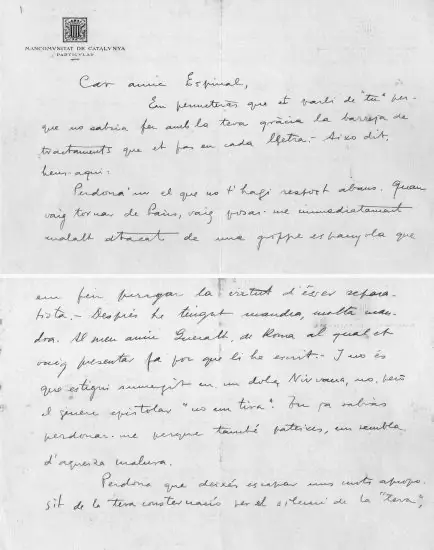 MANCOMVNITAT DE CATALVNYA
PARTICVLAR
Car amic Espinal,
Em permeteràs que et parli de "tu" per-
què no sabria fer amb la teva gràcia la barreja de
tractaments que et fas en cada lletra. - Això dit,
hem-aquí:
Perdona'm el que no t'hagi respost abans. Quan
vaig tornar de París, vaig posar-me immediatament
malalt atacat de una grippe espanyola que
em feu peregar la virtut d'ésser separa-
tista. - Després he tingut mandra, molta man-
dra. Al meu amic Gueralt, de Roma al qual et
vaig presentar fa poc que li he escrit. - I no és
que estigui sumergit en un dolç Nirvana, no, però
el gènere epistolar "no em tira". Tu ja sabràs
perdonar-me perquè també pateixes, em sembla
d'aquesta malura.
Perdona que deixés escapar uns mots apropò-
sit de la teva consternació per el silenci de la "teva",